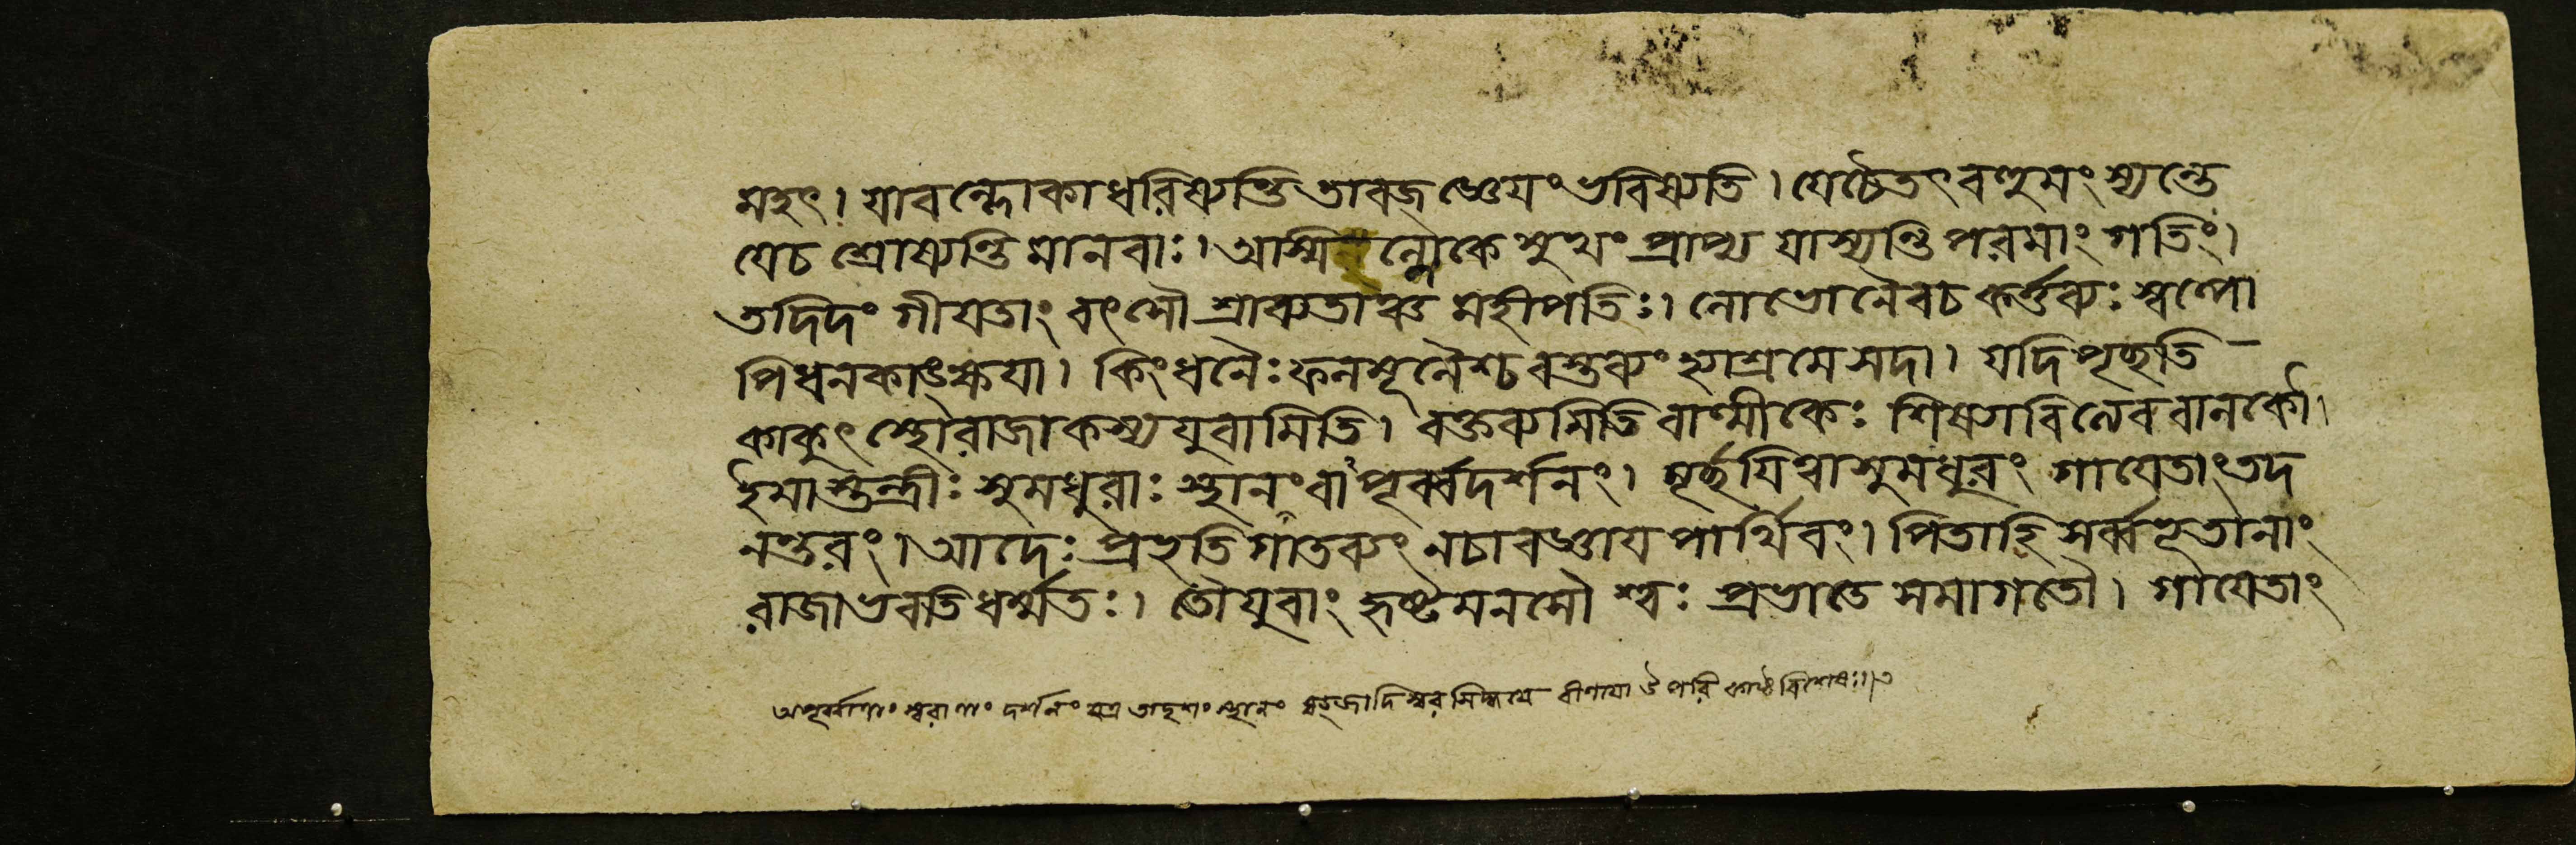 মহৎ। যাবল্লোকাধরিষ্যন্তি তাবজ্জ্ঞেযংভবিষ্যতি। যেচৈতৎ বন্ধুমংস্যন্তে
যেচ শ্রোষ্যন্তি মানবাঃ। অস্মিন্ল্লোকে সুখং প্রাপ্য যাস্যন্তি পরমাং গতিং।
তদিদং গীযতাং বৎসৌ শ্রাব্যতাঞ্চ মহীপতিঃ। লোভোনৈবচ কর্ত্তব্যঃ স্বল্পো
পিধনকাঙ্ক্ষযা। কিংধনৈঃ ফলমূলৈশ্চ বস্তব্যং হ্যাশ্রমে সদা। যদি পৃচ্ছতি
কাকুৎস্থোরাজা কস্য যুবামিতি। বক্তব্যমিতি বাল্মীকেঃ শিষ্যাবিত্যেব বালকৌ।
ইমাস্তন্ত্রীঃ সুমধুরাঃ স্থানংবাপূর্ব্বদর্শনং। মূর্চ্ছযিত্বাসুমধুরং গাযেতাংতদ
নন্তরং। আদেঃ প্রভৃতি গাতব্যং নচাবজ্ঞায পার্থিবং। পিতাহি সর্ব্বভূতানাং
রাজাভবতিধর্ম্মতঃ। তৌযুবাং হৃষ্টমনসৌ শ্বঃ প্রভাতে সমাগতৌ। গাযেতাং
অপূর্ব্বাণাং স্বরাণাং দর্শনং যত্র তাদৃশং স্থানং ষড়্জাদিস্বরসিদ্ধযে বীণাযা উপরি কাষ্ঠবিশেষঃ।